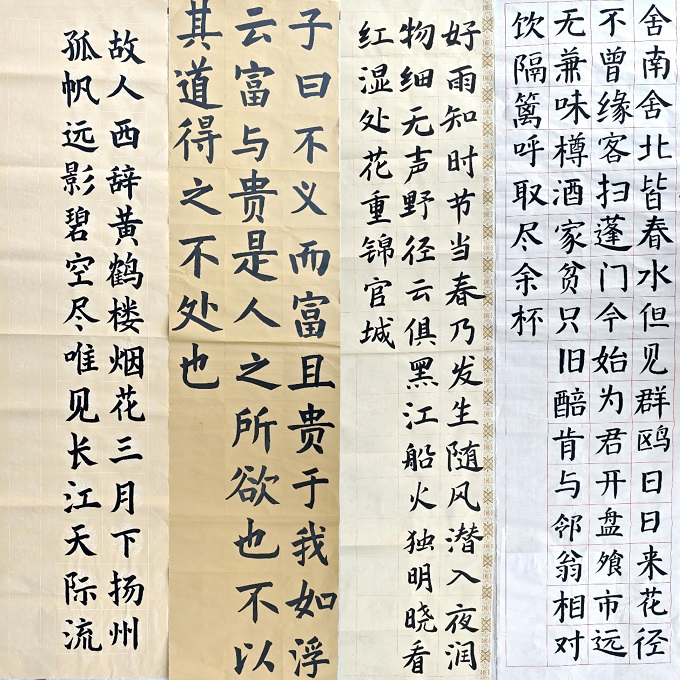 舍南舍北皆春水但见群鸥日日来花径
不曾缘客扫蓬门今始为君开盘飧市远
无兼味樽酒家贫只旧醅肯与邻翁相对
饮隔篱呼取尽余杯
好雨知时节当春乃发生随风潜入夜润
物细无声野径云俱黑江船火独明晓看
红湿处花重锦官城
子曰不义而富且贵于我如浮
云富与贵是人之所欲也不以
其道得之不处也
故人西辞黄鹤楼烟花三月下扬州
孤帆远影碧空尽唯见长江天际流